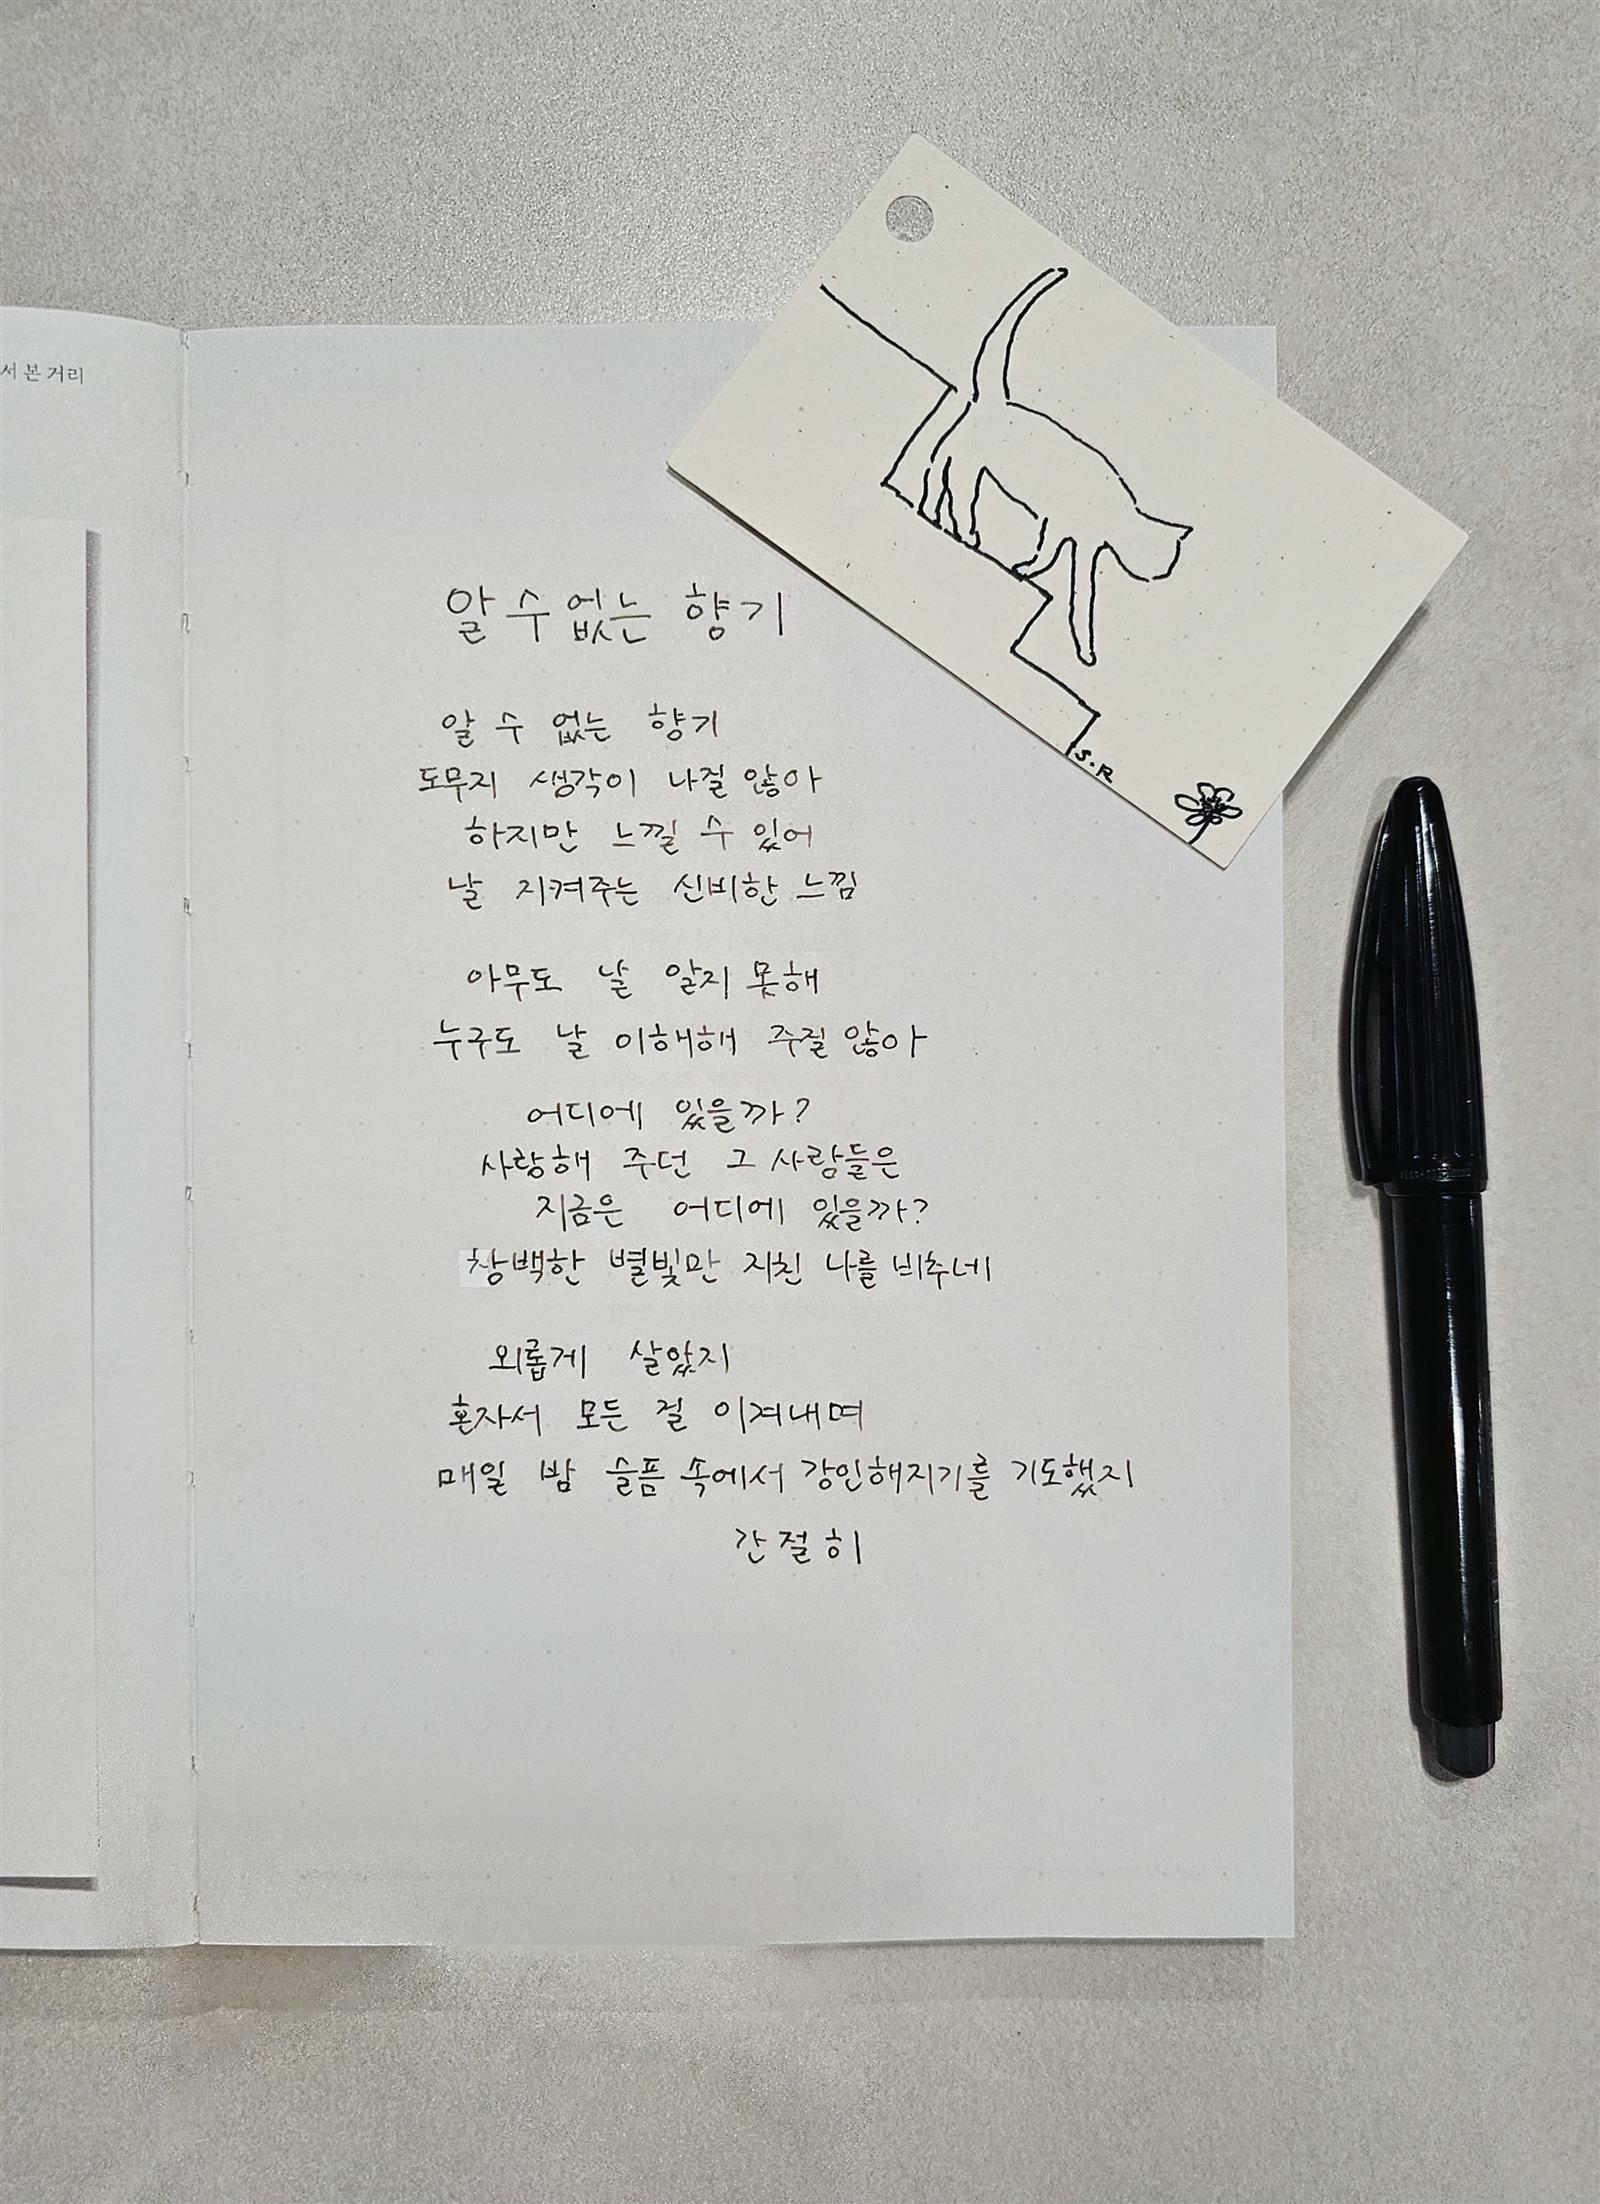 서 본 거리
알 수 없는 향기
알 수 없는 향기
도무지 생각이 나질 않아
하지만 느낄 수 있어
날 지켜주는 신비한 느낌
아무도 날 알지 못해
누구도 날 이해해 주질 않아
어디에 있을까?
사랑해 주던 그 사람들은
지금은 어디에 있을까?
창백한 별빛만 지친 나를 비추네
외롭게 살았지
혼자서 모든 걸 이겨내며
매일 밤 슬픔 속에서 강인해지기를 기도했지
간절히
S.R